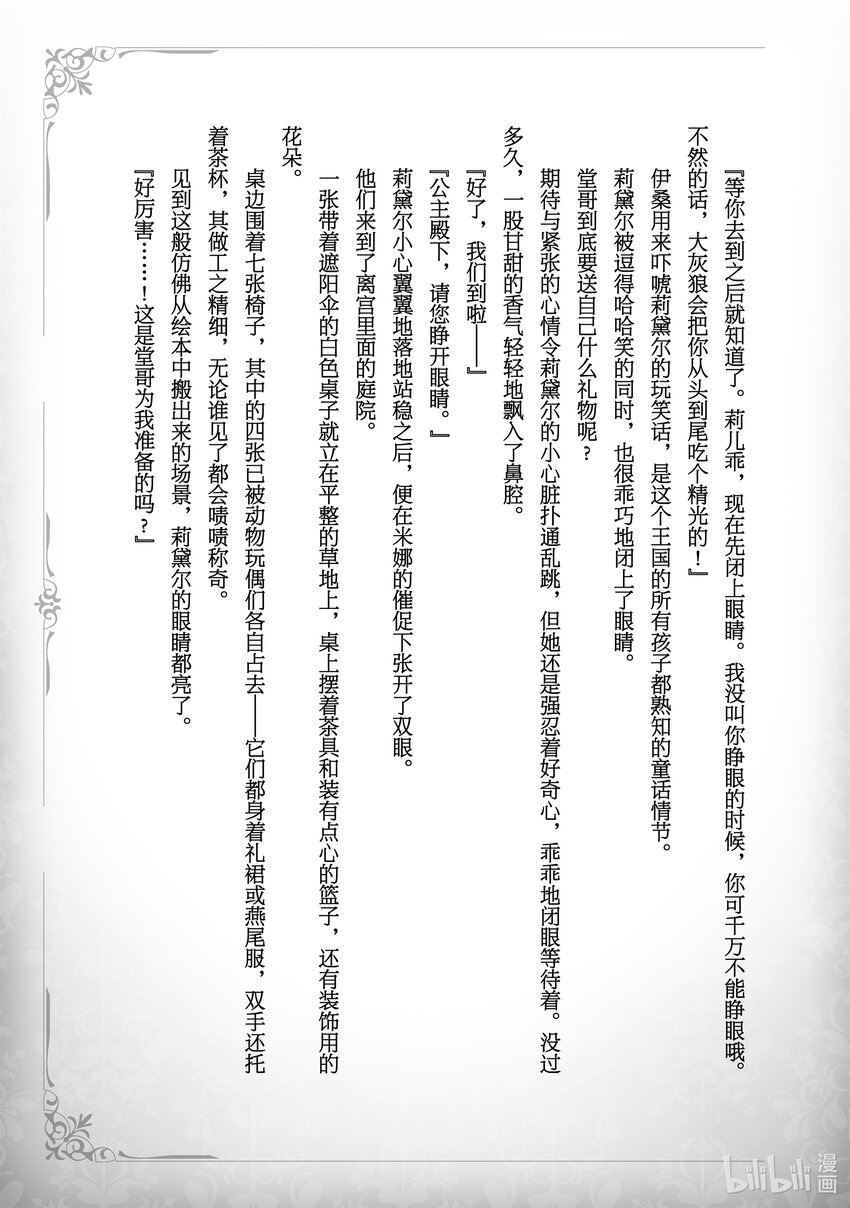 『等你去到之后就知道了。莉儿乖，现在先闭上眼睛。我没叫你睁眼的时候，你可千万不能睁眼哦。
不然的话，大灰狼会把你从头到尾吃个精光的！』
伊桑用来吓唬莉黛尔的玩笑话，是这个王国的所有孩子都熟知的童话情节。
莉黛尔被逗得哈哈笑的同时，也很乖巧地闭上了眼睛。
堂哥到底要送自己什么礼物呢？
期待与紧张的心情令莉黛尔的小心脏扑通乱跳，但她还是强忍着好奇心，乖乖地闭眼等待着。没过
多久，一股甘甜的香气轻轻地飘入了鼻腔。
『好了，我们到啦——』
『公主殿下，请您睁开眼睛。』
莉黛尔小心翼翼地落地站稳之后，便在米娜的催促下张开了双眼。
他们来到了离宫里面的庭院。
一张带着遮阳伞的白色桌子就立在平整的草地上，桌上摆着茶具和装有点心的篮子，还有装饰用的
花朵。
桌边围着七张椅子，其中的四张已被动物玩偶们各自占去——它们都身着礼裙或燕尾服，双手还托
着茶杯，其做工之精细，无论谁见了都会啧啧称奇。
见到这般仿佛从绘本中搬出来的场景，莉黛尔的眼睛都亮了。
『好厉害……！这是堂哥为我准备的吗？』
bilibili
漫画